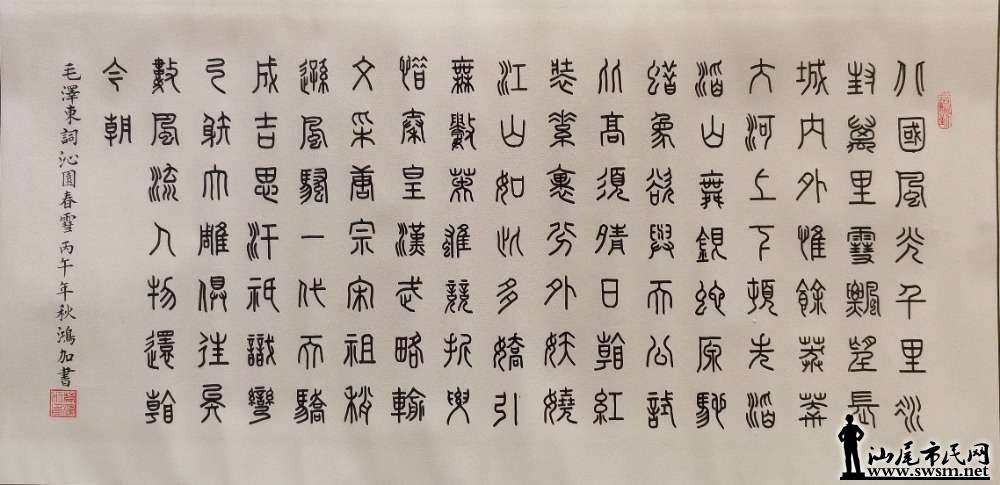 北國風光千里冰
封萬里雪飄望長
城内外惟餘莽莽
大河上下頓失滔
滔山舞銀蛇原馳
蜡象欲與天公試
比高須晴日看紅
裝素裹分外妖嬈
江山如此多嬌引
無數英雄競折腰
惜秦皇漢武略輸
文采唐宗宋祖稍
遜風騷一代天驕
成吉思汗祇識彎
弓射大雕俱往矣
數風流人物還看
今朝
毛澤東詞沁園春雪 丙午年秋鴻加書
汕尾市民网
www.swsm.net